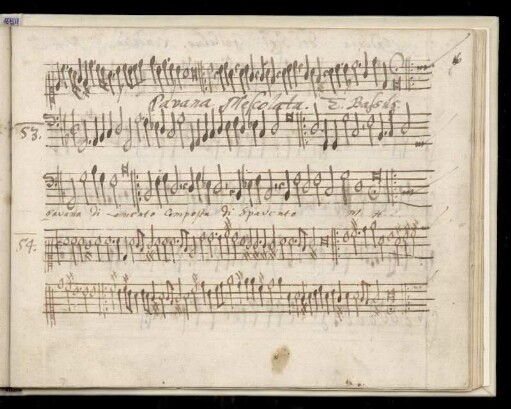 Pavana Mescolata. 2. Bassus.
53.
Pavana di composta di Spavento M. H.
54.